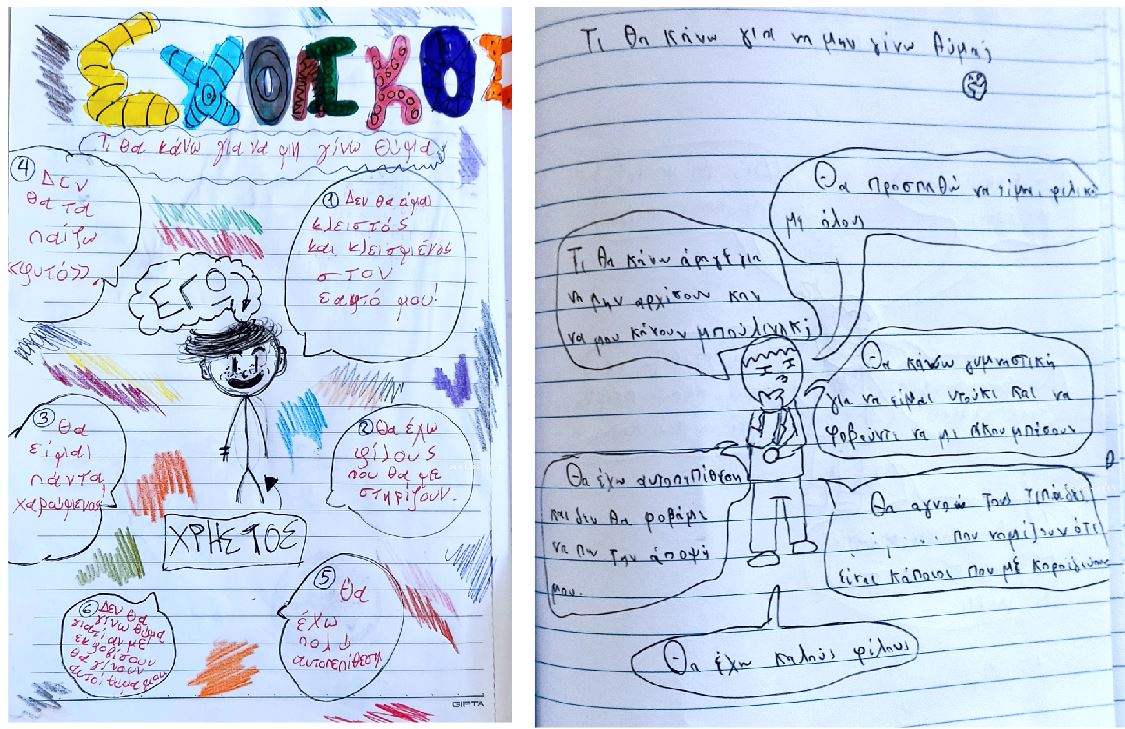 ΣΧΟΛΙΚΟΣ
Τι θα κάνω για να μη γίνω θύμα;
④ Δεν
θα τα
παίζω
«φυτό».
① Δεν θα είμαι
κλειστός
και κλεισμένος
στον
εαφτό μου!
ΕΓΩ
③ Θα
είμαι
πάντα
χαρούμενος
② Θα έχω
φίλους
που θα με
στηρίζουν.
ΧΡΗΣΤΟΣ
⑥ Δεν θα
γίνω θύμα
γιατί αν με
εκφοβίσουν
θα γίνουν
αυτοί θύμα μου
⑤ Θα
έχω
πολύ
αυτοπεπίθεση
GIPTA
Τι θα κάνω για να μην γίνω θύμα;
Θα προσπαθώ να είμαι φιλικός
με όλους
Τι θα κάνω άραγε για
να μην αρχίσουν και
να μου κάνουν μπούλινγκ;
Θα κάνω γυμναστική
για να είμαι ντούκι και να
φοβούντε να με ακουμπίσουν
Θα έχω αυτοπεπίθεση
και δεν θα φοβάμε
να πω την άποψη
μου.
Θα αγνοώ τους
που νομίζουν ότι
είναι κάποιοι που με κοροϊδεύουν
Θα έχω καλούς φίλους